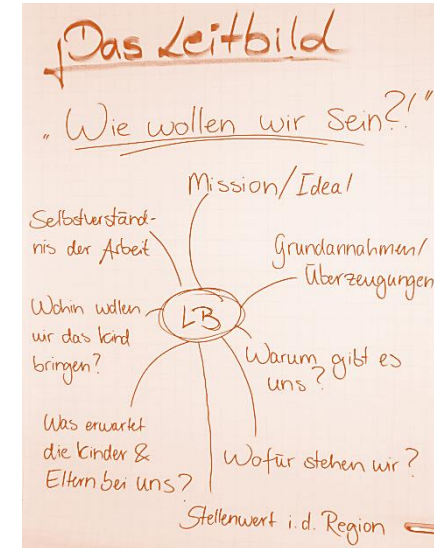 Das Leitbild
"Wie wollen wir Sein?!"
Mission/Ideal
Selbstverständ-
nis der Arbeit
Grundannahmen/
Überzeugungen
Wohin wollen
wir das Kind
bringen?
LB
Warum gibt es
uns?
Was erwartet
die Kinder &
Eltern bei uns?
Wofür stehen wir?
Stellenwert i.d. Region